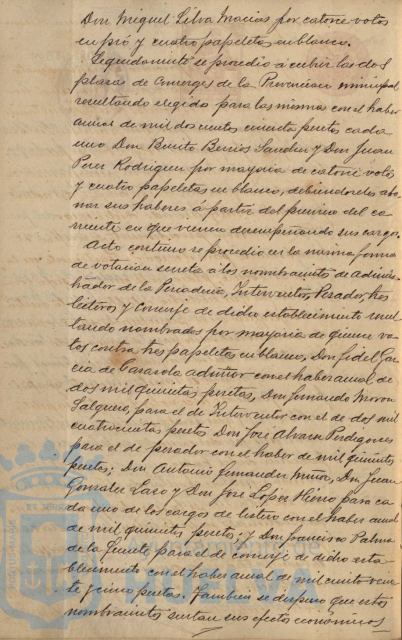 Don Miguel Silva Macias por catorce votos
en pró y cuatro papeletas en blanco.
Seguidamente se procedió á cubrir las dos
plazas de conserges de la Provincia municipal
resultando elegido para las mismas con el haber
anual de mil doscientas cincuenta pesetas cada
uno Don Benito Berrios Sanchez y Don Juan
Perez Rodriguez por mayoria de catorce votos
y cuatro papeletas en blanco, debiendoseles abo
nar sus haberes á partir del primero del co
rriente en que vienen desempeñando sus cargos.
Acto continuo se procedió en la misma forma
de votacion secreta á los nombramientos de adminis
trador de la Pescaderia, Interventor, Pesador, tres
listeros y conserje de dicho establecimiento resul
tando nombrados por mayoria de quince vo
tos contra tres papeletas en blanco, Don Fidel Gar
cia de Casasola admtor con el haber anual de
dos mil quinientas pesetas, Don Fernando Moron
Salguero, para el de Interventor con el de dos mil
cuatrocientas pesetas Don José Alvarez Perdigones
para el de pesador con el haber de mil quinientas
pesetas; Don Antonio Fernandez Muñoz, Don Juan
Gonzalez Lazo y Don José Lopez Hierro para ca
da uno de los cargos de listero con el haber anual
de mil quinientas pesetas; y Don Francisco Palma
de la Fuente para el de conserje de dicho esta
blecimiento con el haber anual de mil ciento vein
te y cinco pesetas. Tambien se dispuso que estos
nombramientos surtan sus efectos económicos